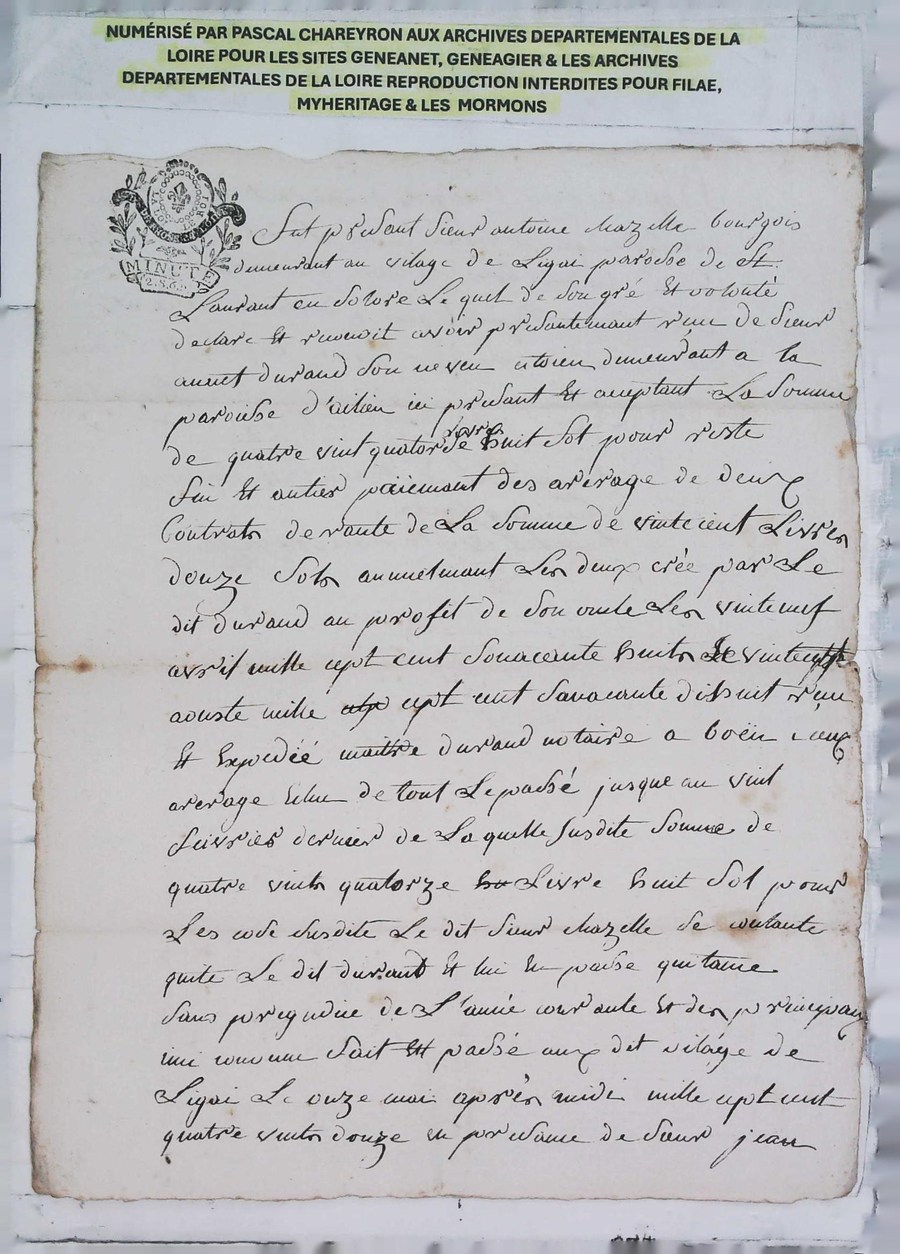 NUMÉRISÉ PAR PASCAL CHAREYRON AUX ARCHIVES DEPARTEMENTALES DE LA
LOIRE POUR LES SITES GENEANET, GENEAGIER & LES ARCHIVES
DEPARTEMENTALES DE LA LOIRE REPRODUCTION INTERDITES POUR FILAE,
MYHERITAGE & LES MORMONS
MINUTE
Fut present sieur antoine chazelle bourgois
demeurant au vilage de Ligai paroisse de St.
Laurant en Solore Le quel de son gré Et volonté
declare Et reconoit avoir presantemant reçu de sieur
durand son neveu citoien demeurant a la
paroisse d'ailieu ici presant Et aceptant La somme
de quatre vint quatorse livres huit sol pour reste
fin Et antier paiemant des arerage de deux
Contrats de rante de La somme de vintecient Livres
douze sols annuelmant Les deux crée par Le
dit durand au profit de son oncle Les vinteneuf
avril mille cept cent souacente huits Le
aouste mille cept cent savacante dishuit reçu
Et Expediéé maitre durand notaire a boën
arerage echu de tout Le passé jusque au vint
feivries dernier de La quelle susdite somme de
quatre vints quatorze Livre huit sol pour
Les code susdite Le dit sieur chazelle se contante
quite Le dit durant Et lui En passe quitance
sans prejudice de L'année courante Et des principaux
insi convenu fait Et passé aux dit vilage de
Ligai Le onze mai après midi mille cept cent
quatre vints douze en presance de sieur jean